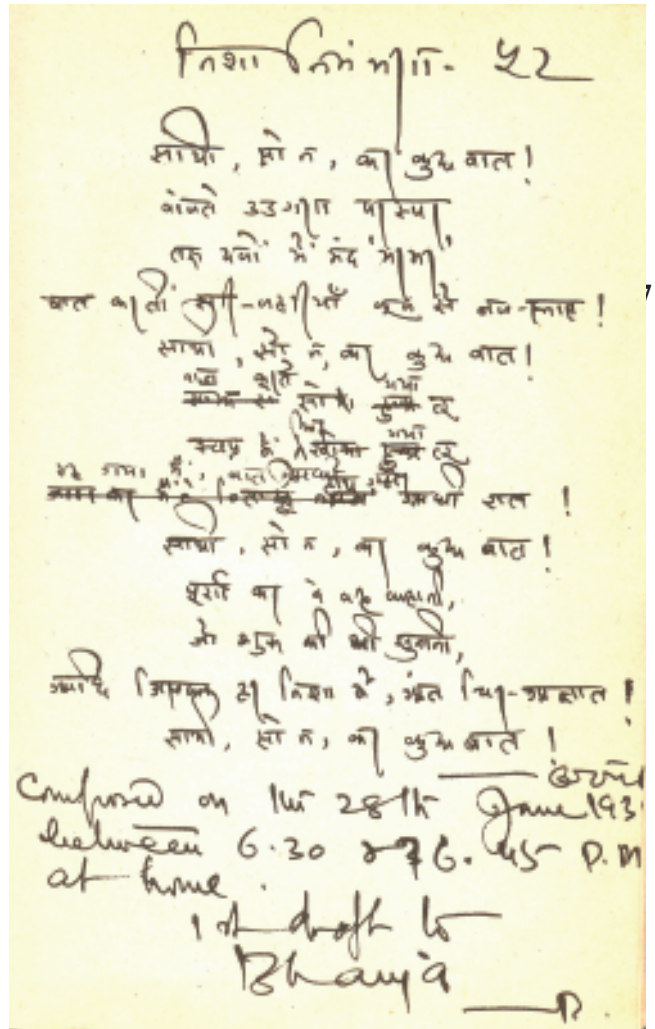 निशा निमंत्रण - ५२
साथी, सो न, कर कुछ बात!
बोलते उडुगण परस्पर,
तरु दलों में मंद मरमर,
बात करतीं सरि-लहरियाँ कूल से जल-स्नात!
साथी, सो न, कर कुछ बात!
बात करते सो गया तू
स्वप्न में फिर खो गया तू
रह गया मैं और आधी रात!
साथी, सो न, कर कुछ बात!
पूर्ण कर दे वह कहानी,
जो शुरू की थी सुनानी,
आदि जिसका हर निशा में, अंत चिर-अज्ञात!
साथी, सो न, कर कुछ बात!
Composed on the 28th June 193
between 6.30 & 6.45 P.M
at home.
1st draft to